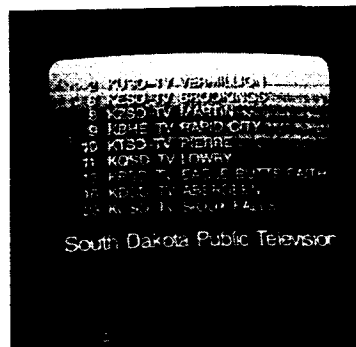 2 KUSD-TV VERMILLION
8 KESD-TV BROOKINGS
8 KZSD-TV MARTIN
9 KBHE TV RAPID CITY
10 KTSD TV PIERRE
11 KQSD-TV LOWRY
13 KPSD TV EAGLE BUTTE FAITH
16 KDSD TV ABERDEEN
23 KCSD TV SIOUX FALLS
South Dakota Public Television